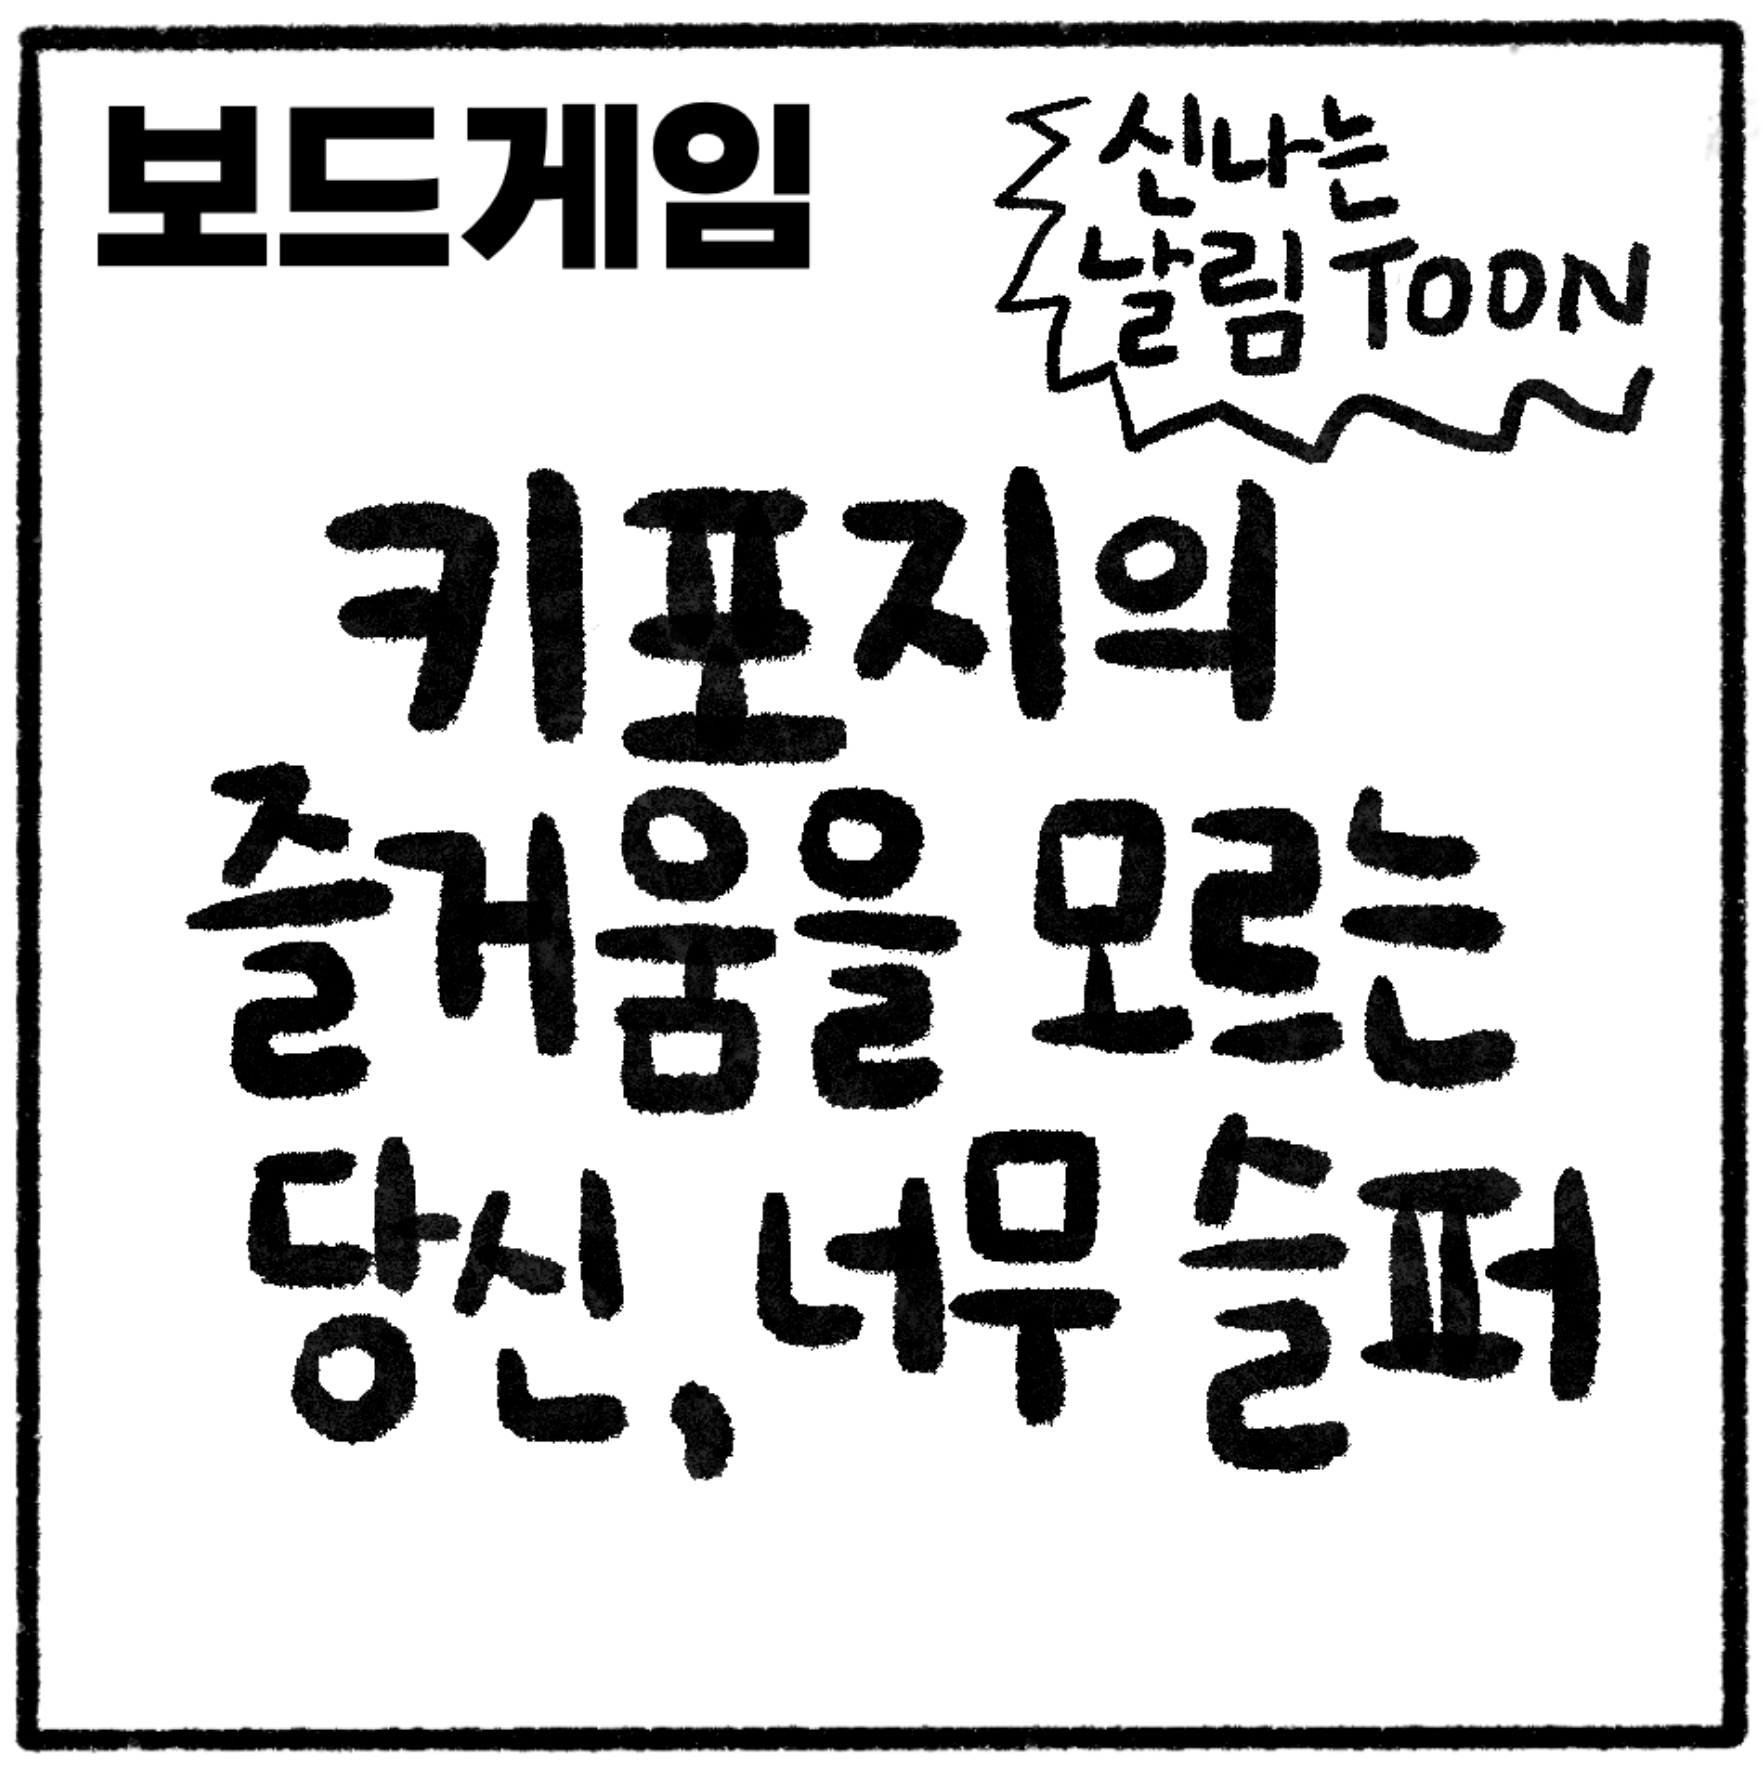 보드게임
신나는
날림 TOON
키포지의
즐거움을 모르는
당신, 너무 슬퍼